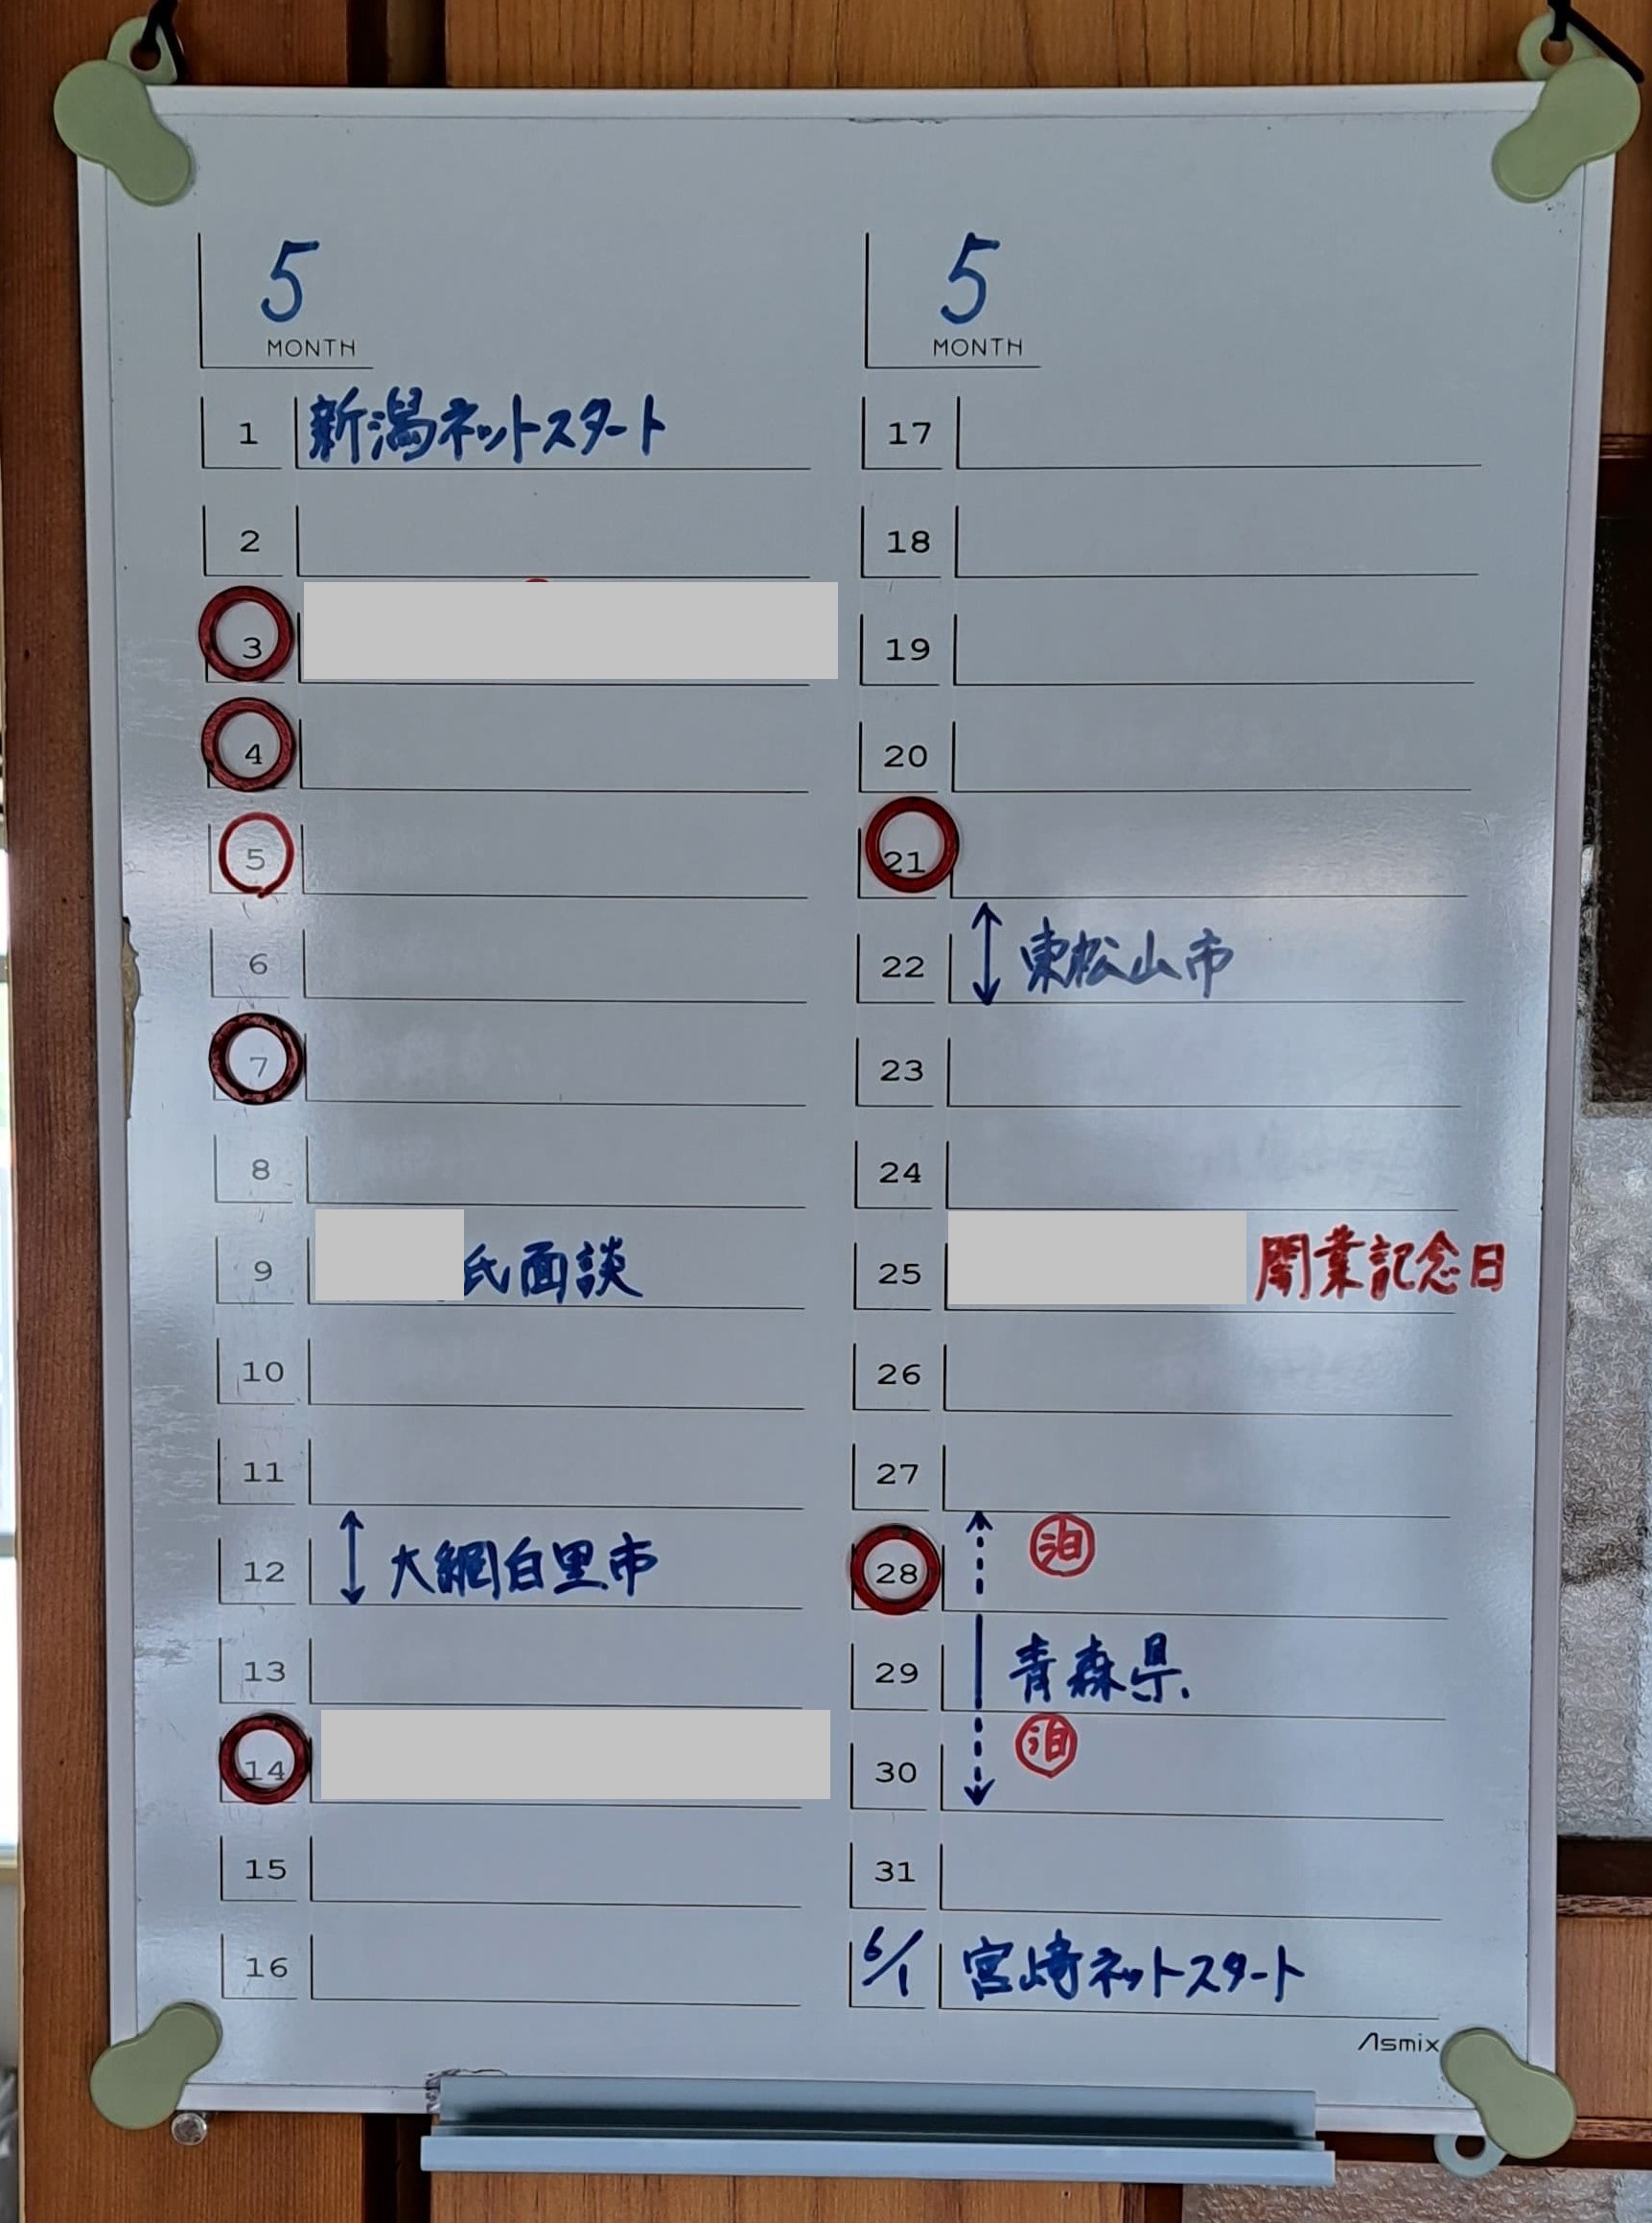 5
MONTH
1 新潟ネットスタート
2
3
4
5
6
7
8
9 氏面談
10
11
12 大網白里市
13
14
15
16
5
MONTH
17
18
19
20
21
22 東松山市
23
24
25 開業記念日
26
27
28 泊
29 青森県
30 泊
31
6/1 宮崎ネットスタート
Asmix